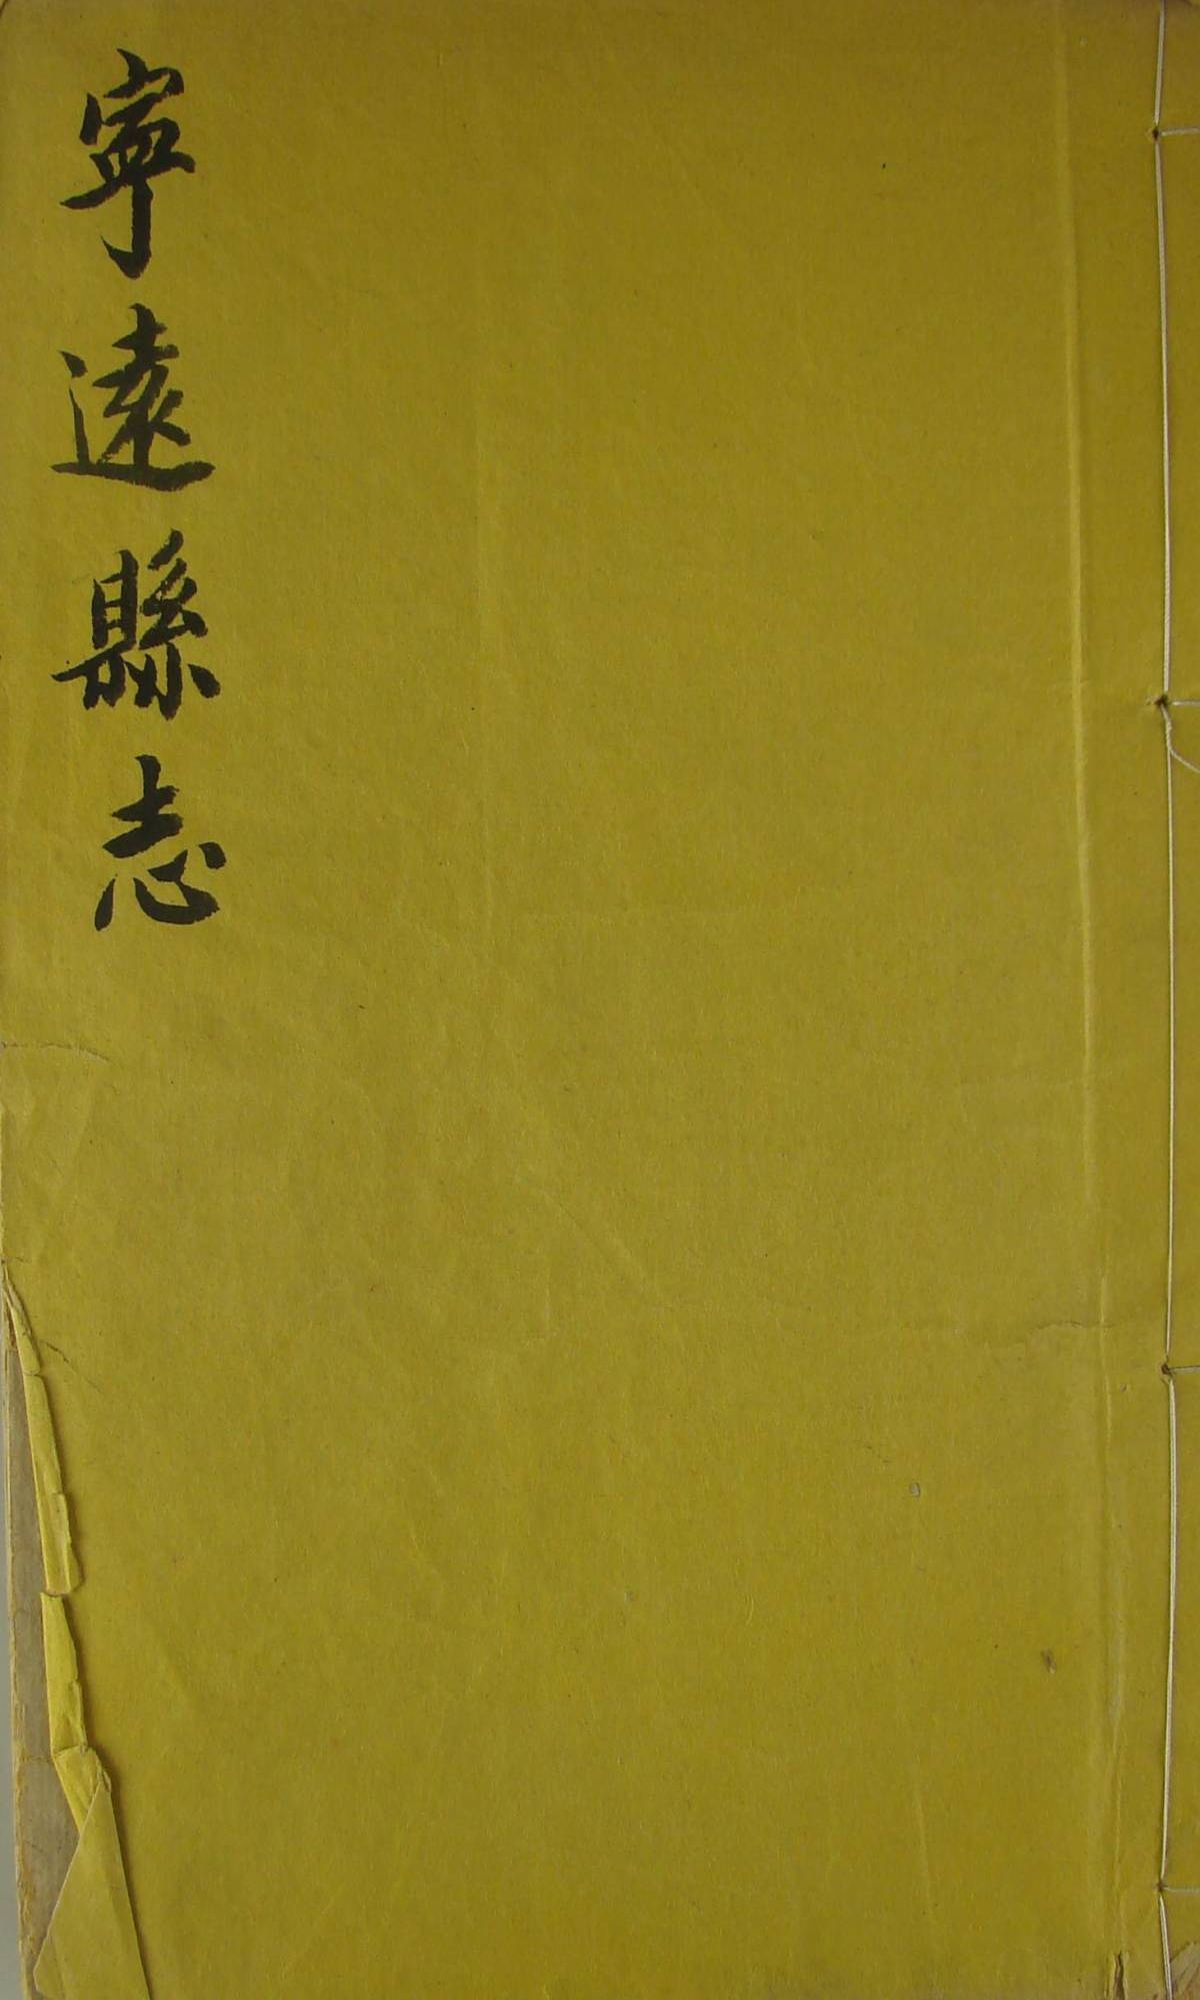 寧遠縣志